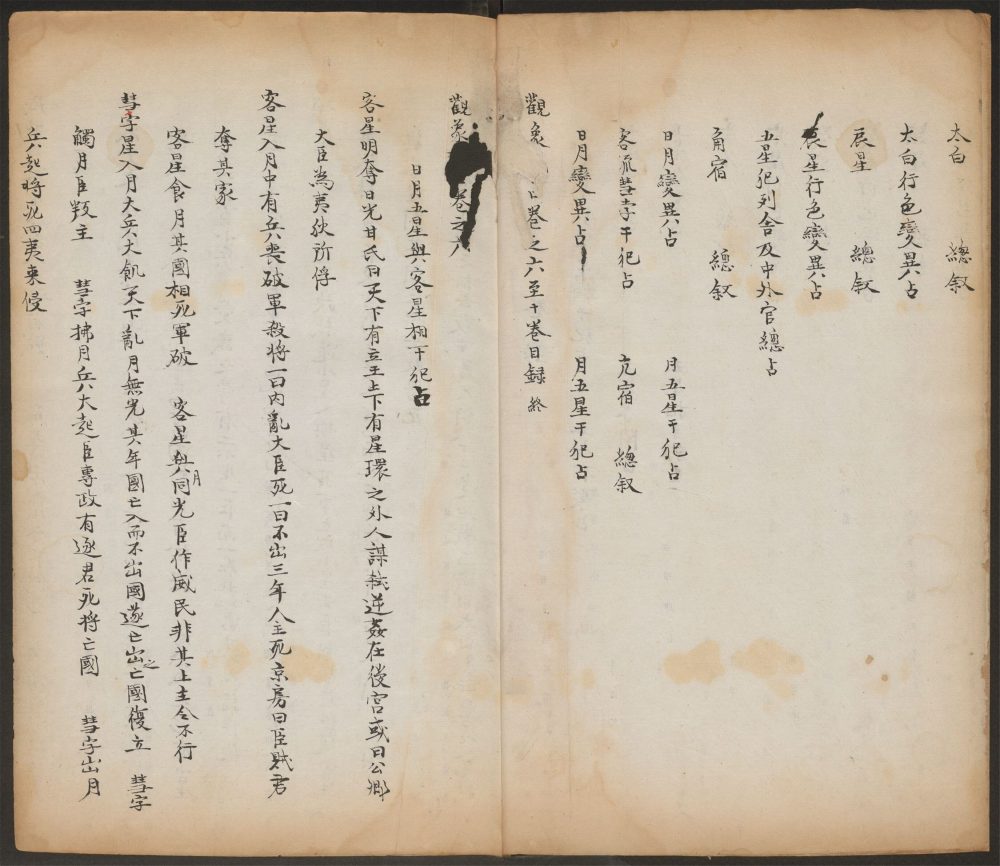 太白　總叙
太白行色變異占
辰星　總叙
辰星行色變異占
五星犯列舍及中外官總占
角宿　總叙
日月變異占　月五星干犯占
客流彗孛干犯占　亢宿　總叙
日月變異占　月五星干犯占
觀象　占卷之六至十卷目録終
觀象　卷之六
日月五星與客星相干犯占
客星明奪日光甘氏曰天下有立王上下有星環之外人謀弒逆姦在後宮或曰公卿
大臣為夷狄所俘
客星入月中有兵喪破軍殺將一曰內亂大臣死一曰不出三年人主死京房曰臣賊君
奪其家
客星食月其國相死軍破　客星與月同光臣作威民非其上主令不行
彗孛星入月大兵大飢天下亂月無光其年國亡入而不出國遂亡出之亡國復立　彗孛
觸月臣叛主　彗孛拂月兵大起臣專政有逐君死將亡國　彗孛出月
兵起將死四夷來侵